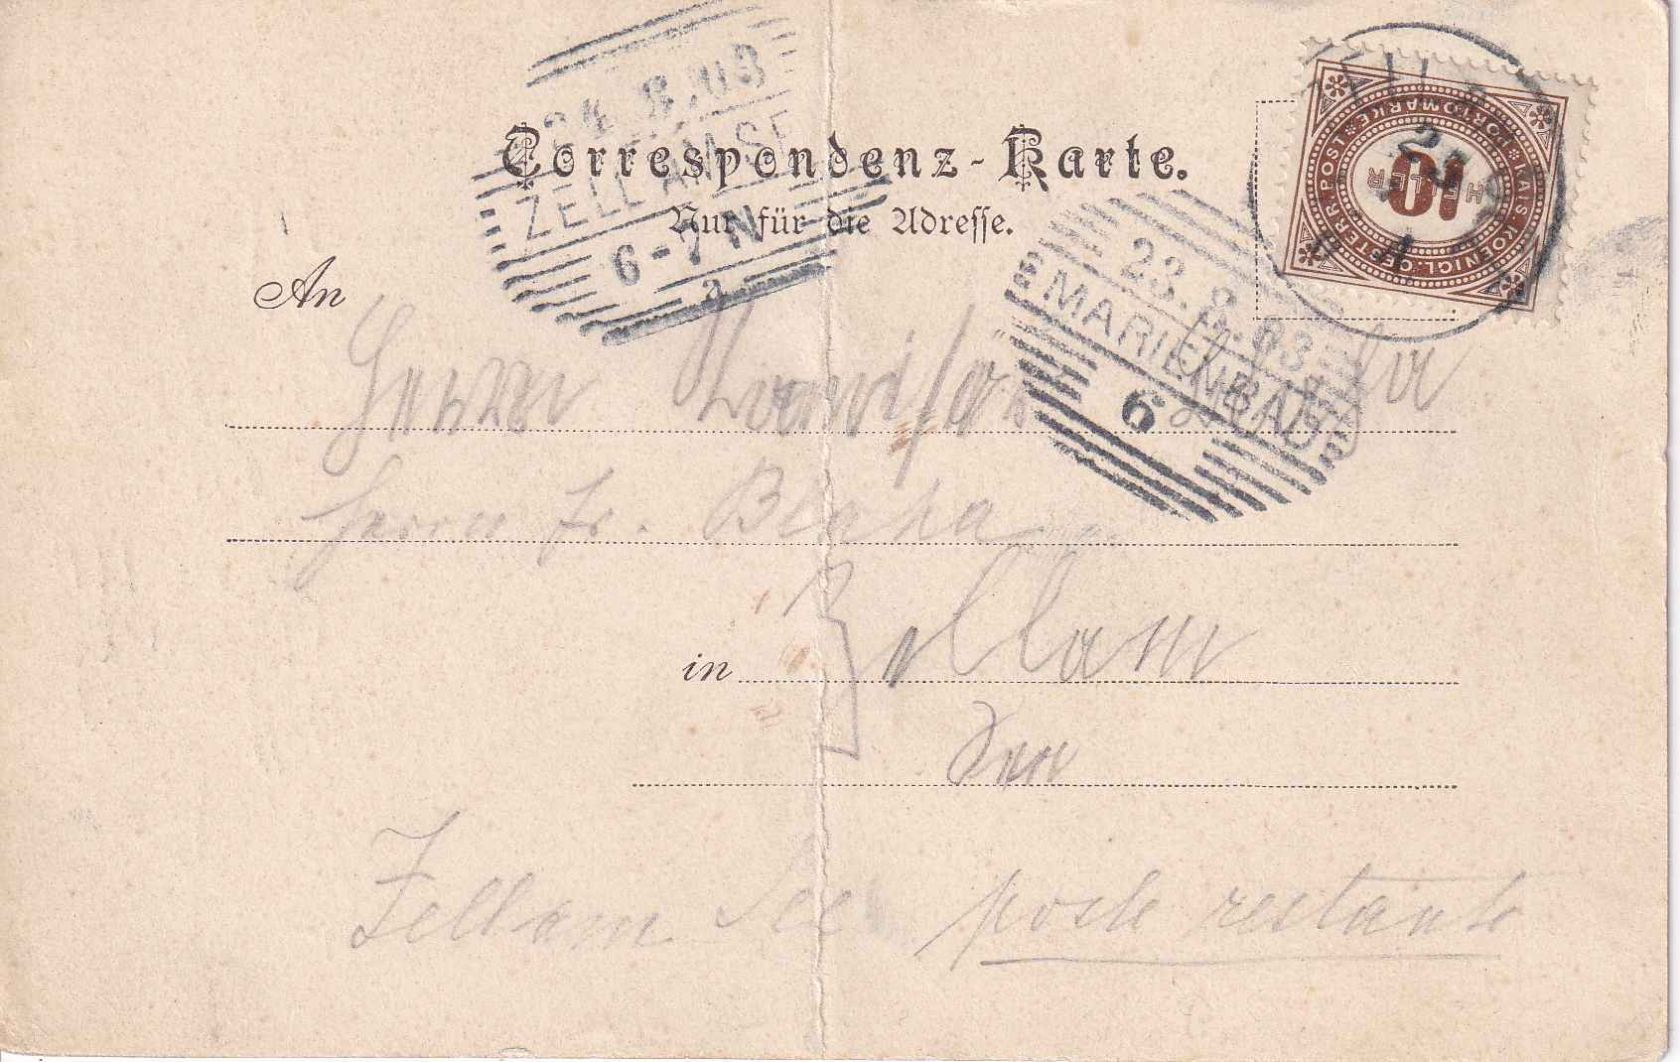 24.8.03
ZELL AM SEE
6-7 N
a
Correspondenz-Karte.
Nur für die Adresse.
KAIS. KOENIGL. OESTERR. POST
PORTOMARKE
10
HELLER
23.8.03
MARIENBAD
6
An
Herrn
Herrn Fr. Blaha
in Zell am
See
Zell am See poste restante